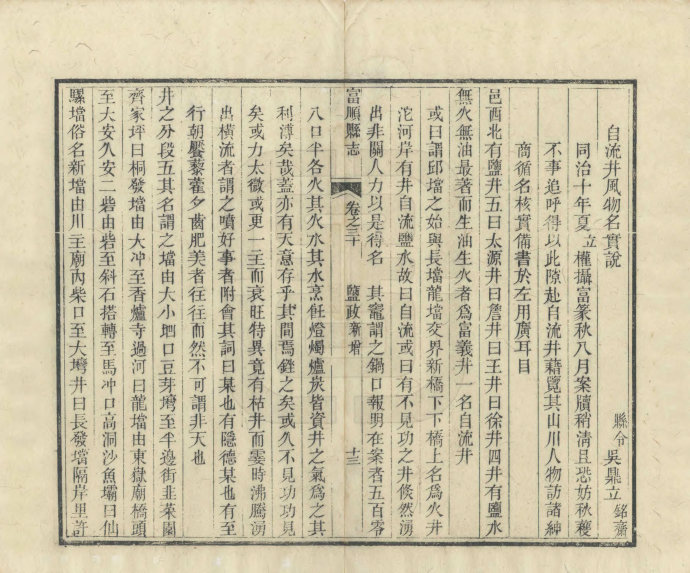 自流井風物名實說
縣令 吳鼎立 銘齋
同治十年夏立權攝富篆秋八月案牘稍清且恐妨秋穫
不事追呼得以此隙赴自流井藉覽其山川人物訪諸紳
商循名核實備書於左用廣耳目
邑西北有鹽井五曰太源井曰詹井曰王井曰徐井四井有鹽水
無火無油最著而生油生火者爲富義井一名自流井
或曰謂邱壋之始與長壋龍壋交界新橋下下橋上名爲火井
沱河岸有井自流鹽水故曰自流或曰有不見功之井倐然湧
出非關人力以是得名 其竈謂之鍋口報明在案者五百零
富順縣志 卷之三十 鹽政新增 十三
八口半各火其火水其水烹飪燈燭爐炭皆資井之氣爲之其
利溥矣哉蓋亦有天意存乎其間焉銼之矣或久不見功功見
矣或力太微或更一主而衰旺特異竟有枯井而霎時沸騰湧
出橫流者謂之噴好事者附會其詞曰某也有隱德某也有至
行朝饜藜藿夕齒肥美者往往而然不可謂非天也
井之分段五其名謂之壋由大小𡋾口豆芽灣至半邊街韭菜園
齊家坪曰桐發壋由大冲至香爐寺過河曰龍壋由東嶽廟橋頭
至大安久安二砦由砦至斜石搭轉至馬冲口高洞沙魚壩曰仙
騾壋俗名新壋由川主廟內柴口至大灣井曰長發壋隔岸里許